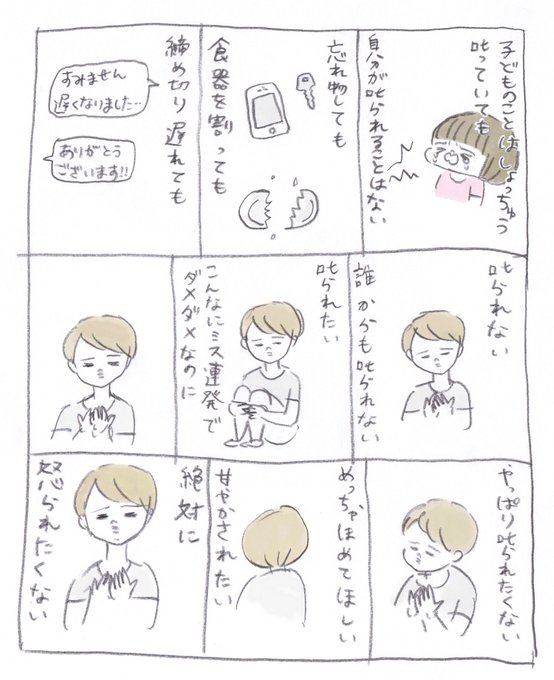 子どものことはしょっちゅう
叱っていても
自分が叱られることはない
忘れ物しても
食器を割っても
締め切り遅れても
すみません
遅くなりました…
ありがとう
ございます!!
叱られない
誰からも叱られない
叱られたい
こんなにミス連発で
ダメダメなのに
やっぱり叱られたくない
めっちゃほめてほしい
甘やかされたい
絶対に
怒られたくない